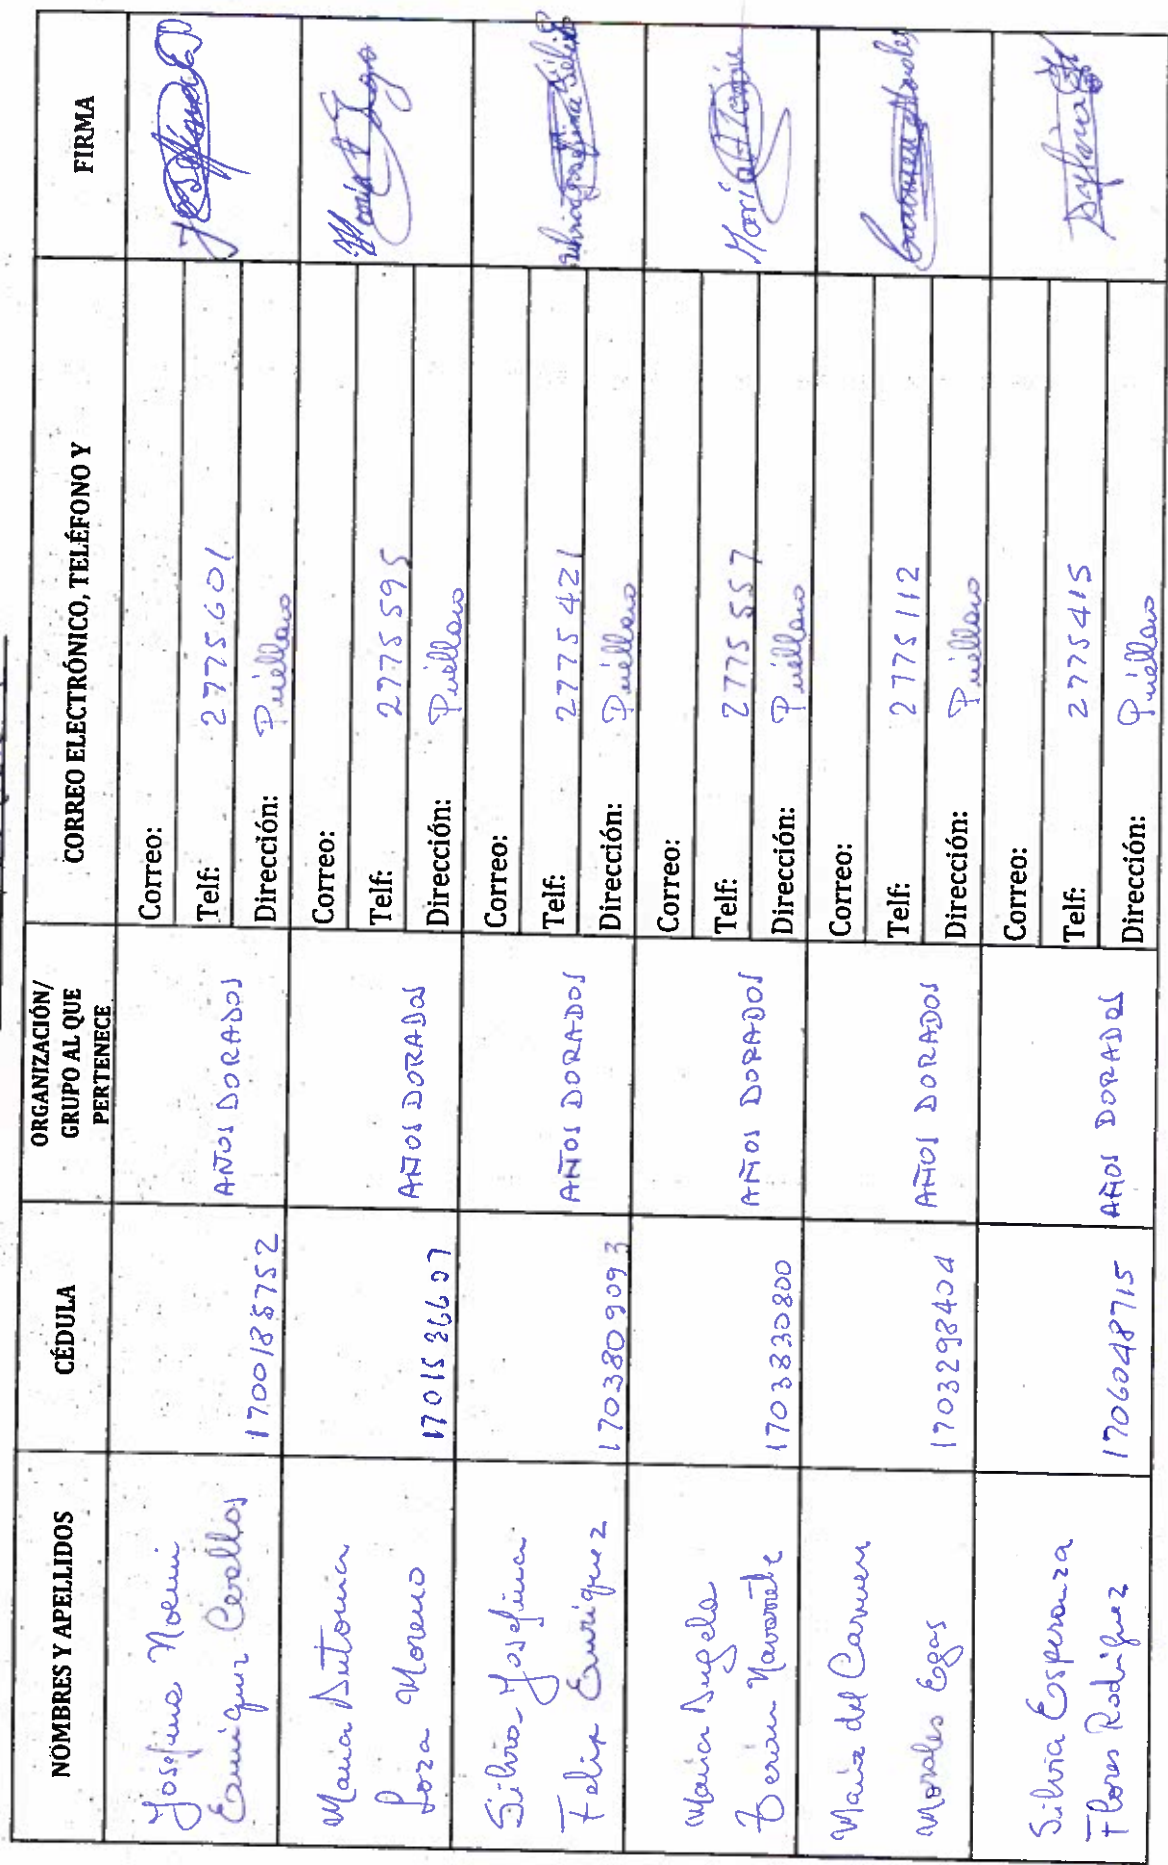 NOMBRES Y APELLIDOS
CÉDULA
ORGANIZACIÓN/
GRUPO AL QUE
PERTENECE
CORREO ELECTRÓNICO, TELÉFONO Y
FIRMA
Josefina Noemi
Enriquez Cevallos
1700185752
AÑOS DORADOS
Correo:
Telf: 2775601
Dirección: Puéllaro
Maria Antonia
Loza Moreno
AÑOS DORADOS
Correo:
Telf: 2775595
Dirección: Puéllaro
Maria A Loza
Silvia Josefina
Felix Enriquez
1703809093
AÑOS DORADOS
Correo:
Telf: 2775421
Dirección: Puéllaro
Maria Angela
Teran Navarrete
1703830800
AÑOS DORADOS
Correo:
Telf: 2775557
Dirección: Puéllaro
Maria A Terán
Maria del Carmen
Morales Egas
1703298404
AÑOS DORADOS
Correo:
Telf: 2775112
Dirección: Puéllaro
Carmen Morales
Silvia Esperanza
Flores Rodriguez
1706048715
AÑOS DORADOS
Correo:
Telf: 2775415
Dirección: Puéllaro